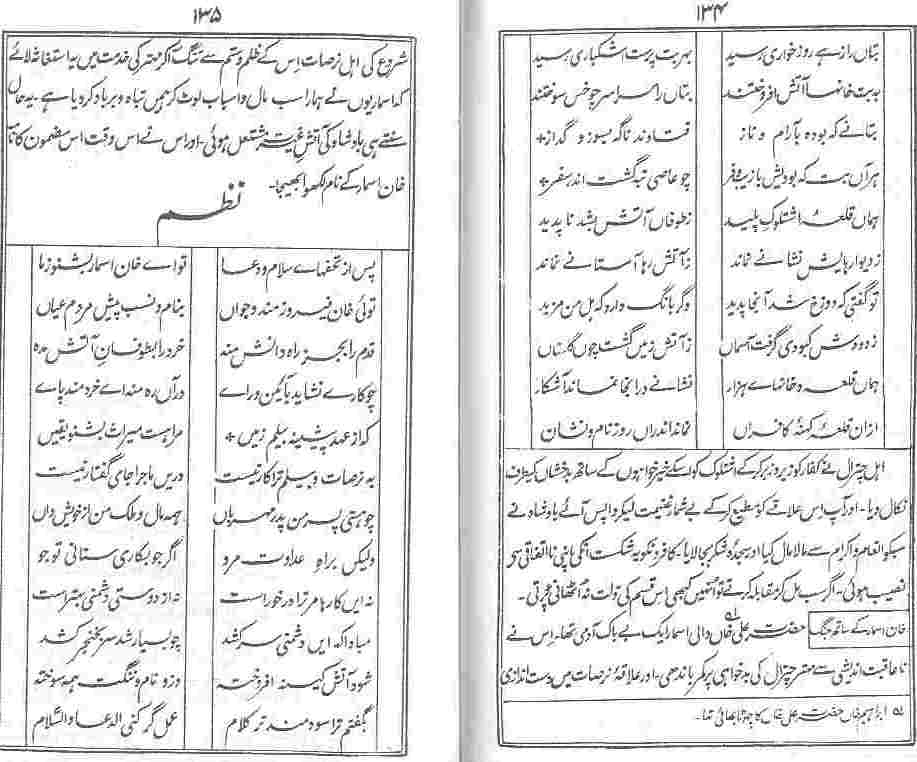 ۱۳۴
بتاں راز ہے روز خواری رسید بہر بت پرست اشکباری رسید
بہ بت خانہا آتش افروختند بتاں را سراسر چو خس سوختند
بتانے کہ بودہ بآرام و ناز فتادند ناگہ بسوز و گداز
ہر آں بت کہ بودیش با زیب و فر چو عاصی تبہ گشت اندر سقر
ہماں قلعۂ اشتلوک پلید ز طوفاں آتش بشد ناپدید
ز دیوارہایش نشانے نماند ز آتش رہا آستانے نماند
تو گفتی کہ دوزخ شد آنجا پدید وگر بانگ دارد کہ ہل من مزید
ز دودش کبودی گرفت آسماں ز آتش زمیں گشت چوں
ہماں قلعہ و خانہاے ہزار نشانے در انجا نماند آشکار
ازاں قلعۂ کہنۂ کافراں نماند اندراں روز نام و نشان
اہل چترال نے کفار کو زیر و زبر کرکے اشتلوک کو اسکے خیر خواہوں کے ساتھ بدخشاں کیطرف
نکال دیا۔ اور آپ اس علاقے کو مطیع کر کے بے شمار غنیمت لیکر واپس آئے بادشاہ نے
سبکو انعام و اکرام سے مالا مال کیا اور سجدۂ شکر بجا لایا۔ کافرونکو یہ شکست انکی اپنی نااتفاقی سے
نصیب ہوئی۔ اگر سب مل کر مقابلہ کرتے تو انہیں کبھی اس قسم کی ذلت نہ اٹھانی پڑتی۔
خان اسمار کے ساتھ جنگ حضرت علی خاں والی اسمار ایک بے باک آدمی تھا۔ اس نے
نا عاقبت اندیشی سے مہتر چترال کی بدخواہی پر کمر باندھی۔ اور علاقۂ نرصات میں دست اندازی
ابراہیم خاں حضرت علی خاں کا چھوٹا بھائی تھا۔
۱۳۵
شروع کی اہل نرصات اس کے ظلم و ستم سے تنگ آکر مہتر کی خدمت میں یہ استغاثہ لائے
کہ اسماریوں نے ہمارا سب مال و اسباب لوٹ کر ہمیں تباہ و برباد کر دیا ہے۔ یہ حال
سنتے ہی بادشاہ کی آتش غیرت مشتعل ہوئی۔ اور اس نے اس وقت اس مضمون کا نامہ
خان اسمار کے نام لکھوا بھیجا۔
نظم
پس از تحفہاے سلام و دعا تو اے خان اسمار بشنو ز ما
توئی خان فیروز مند و جواں بنام و نسب پیش مردم عیاں
قدم را بجز راہ دانش منہ خرد را بطوفان آتش مدہ
چو کارے نشاید بآئین و راے در آں رہ منہ اے خردمند پاے
کہ از عہد پیشینہ بیلم زمیں مرا ہست میراث بشنو یقیں
بہ نرصات و بیلم ترا کار نیست دریں ماجرا جای گفتار نیست
چو ہستی پسر من پدر مہرباں ہمہ مال و ملک من از خویش داں
ولیکن براہِ عداوت مرو اگر جو بکاری ستانی تو جو
نہ ایں کارہا مر ترا درخوراست نہ از دوستی دشمنی بہتراست
مبادا کہ ایں دشمنی سر کشد چو بسیار شد سر بخنجر کشد
شود آتش کینہ افروختہ درو نام و ننگت ہمہ سوختہ
بگفتم ترا سودمند تر کلام عمل گر کنی الدعا والسلام